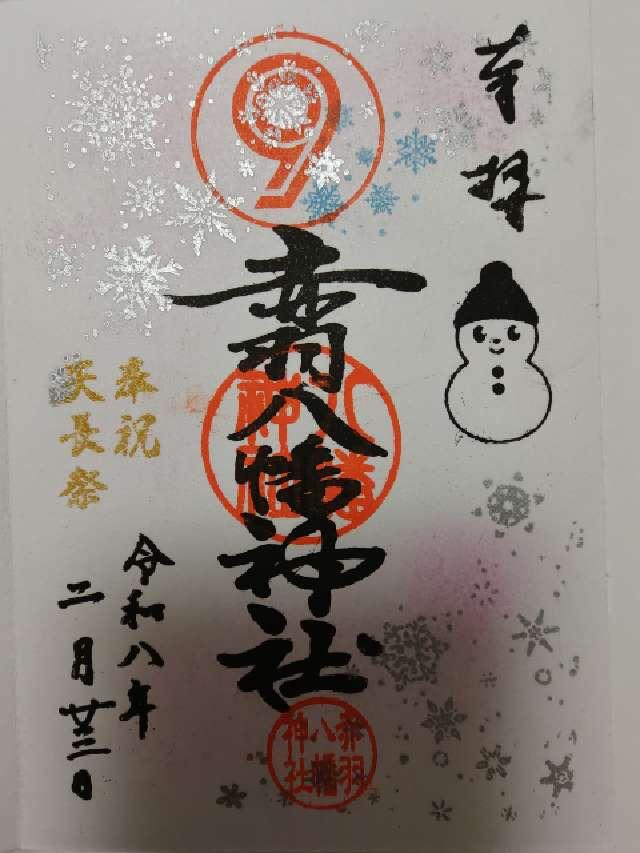 奉拝
9
赤羽八幡神社
八幡神社
奉祝
天長祭
令和八年
二月廿三日
赤羽八幡神社